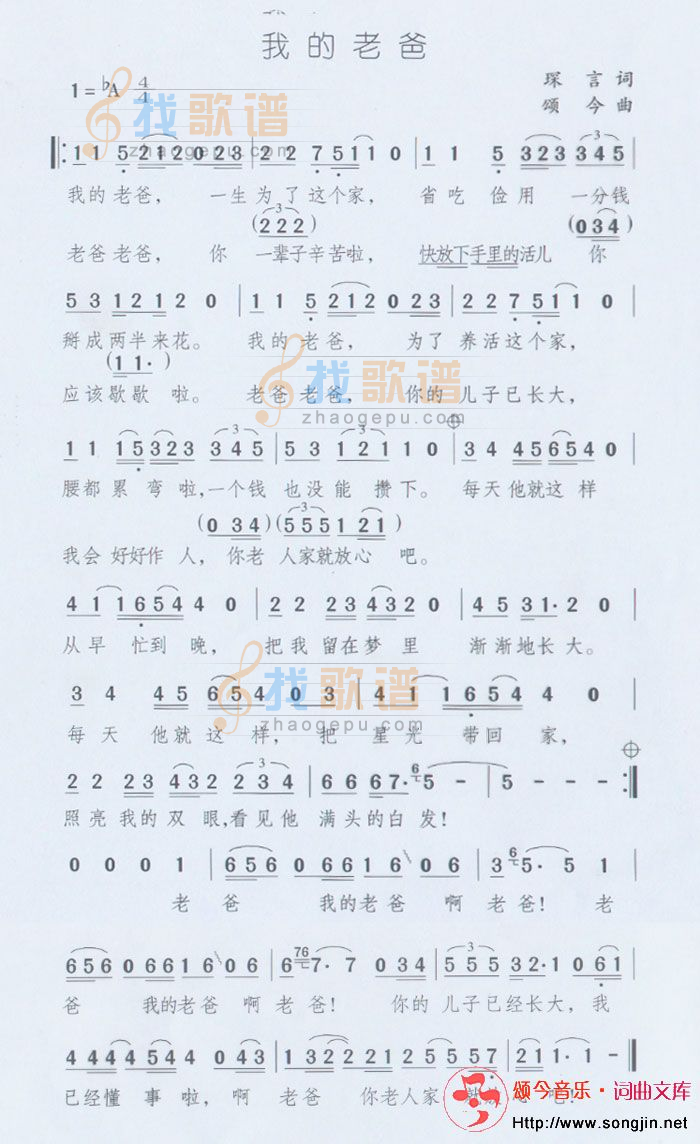 我的老爸
1=♭A 4/4 琛言词
颂今曲
找歌谱
zhaogepu.com
1 1 5 2 1 2 0 2 3 | 2 2 7 5 1 1 0 | 1 1 5 3 2 3 3 4 5
我的老爸， 一生为了这个家， 省吃俭用 一分钱
(2 2 2) (0 3 4)
老爸老爸， 你 一辈子辛苦啦， 快放下手里的活儿 你
5 3 1 2 1 2 0 | 1 1 5 2 1 2 0 2 3 | 2 2 7 5 1 1 0
掰成两半来花。 我的老爸， 为了养活这个家，
(1 1·)
应该歇歇啦。 老爸老爸， 你的儿子已长大，
找歌谱
zhaogepu.com
1 1 1 5 3 2 3 3 4 5 | 5 3 1 2 1 1 0 | 3 4 4 5 6 5 4 0
腰都累弯啦,一个钱也没能攒下。 每天他就这样
(0 3 4) (5 5 5 1 2 1)
我会好好作人，你老人家就放心吧。
4 1 1 6 5 4 4 0 | 2 2 2 3 4 3 2 0 | 4 5 3 1· 2 0
从早忙到晚， 把我留在梦里 渐渐地长大。
找歌谱
zhaogepu.com
3 4 4 5 6 5 4 0 3 | 4 1 1 6 5 4 4 0
每天他就这样，把星光带回家，
2 2 2 3 4 3 2 2 3 4 | 6 6 6 7· 6 5 - - | 5 - - -
照亮我的双眼,看见他满头的白发！
0 0 0 1 | 6 5 6 0 6 6 1 6 0 6 | 3 6 5· 5 1
老爸 我的老爸啊老爸！ 老
6 5 6 0 6 6 1 6 0 6 | 6 76 7· 7 0 3 4 | 5 5 5 3 2· 1 0 6 1
爸 我的老爸啊老爸！ 你的儿子已经长大，我
4 4 4 4 5 4 4 0 4 3 | 1 3 2 2 2 1 2 5 5 5 7 | 2 1 1 1· 1 -
已经懂事啦，啊老爸 你老人家 吧！
颂今音乐·词曲文库
Http://www.songjin.net